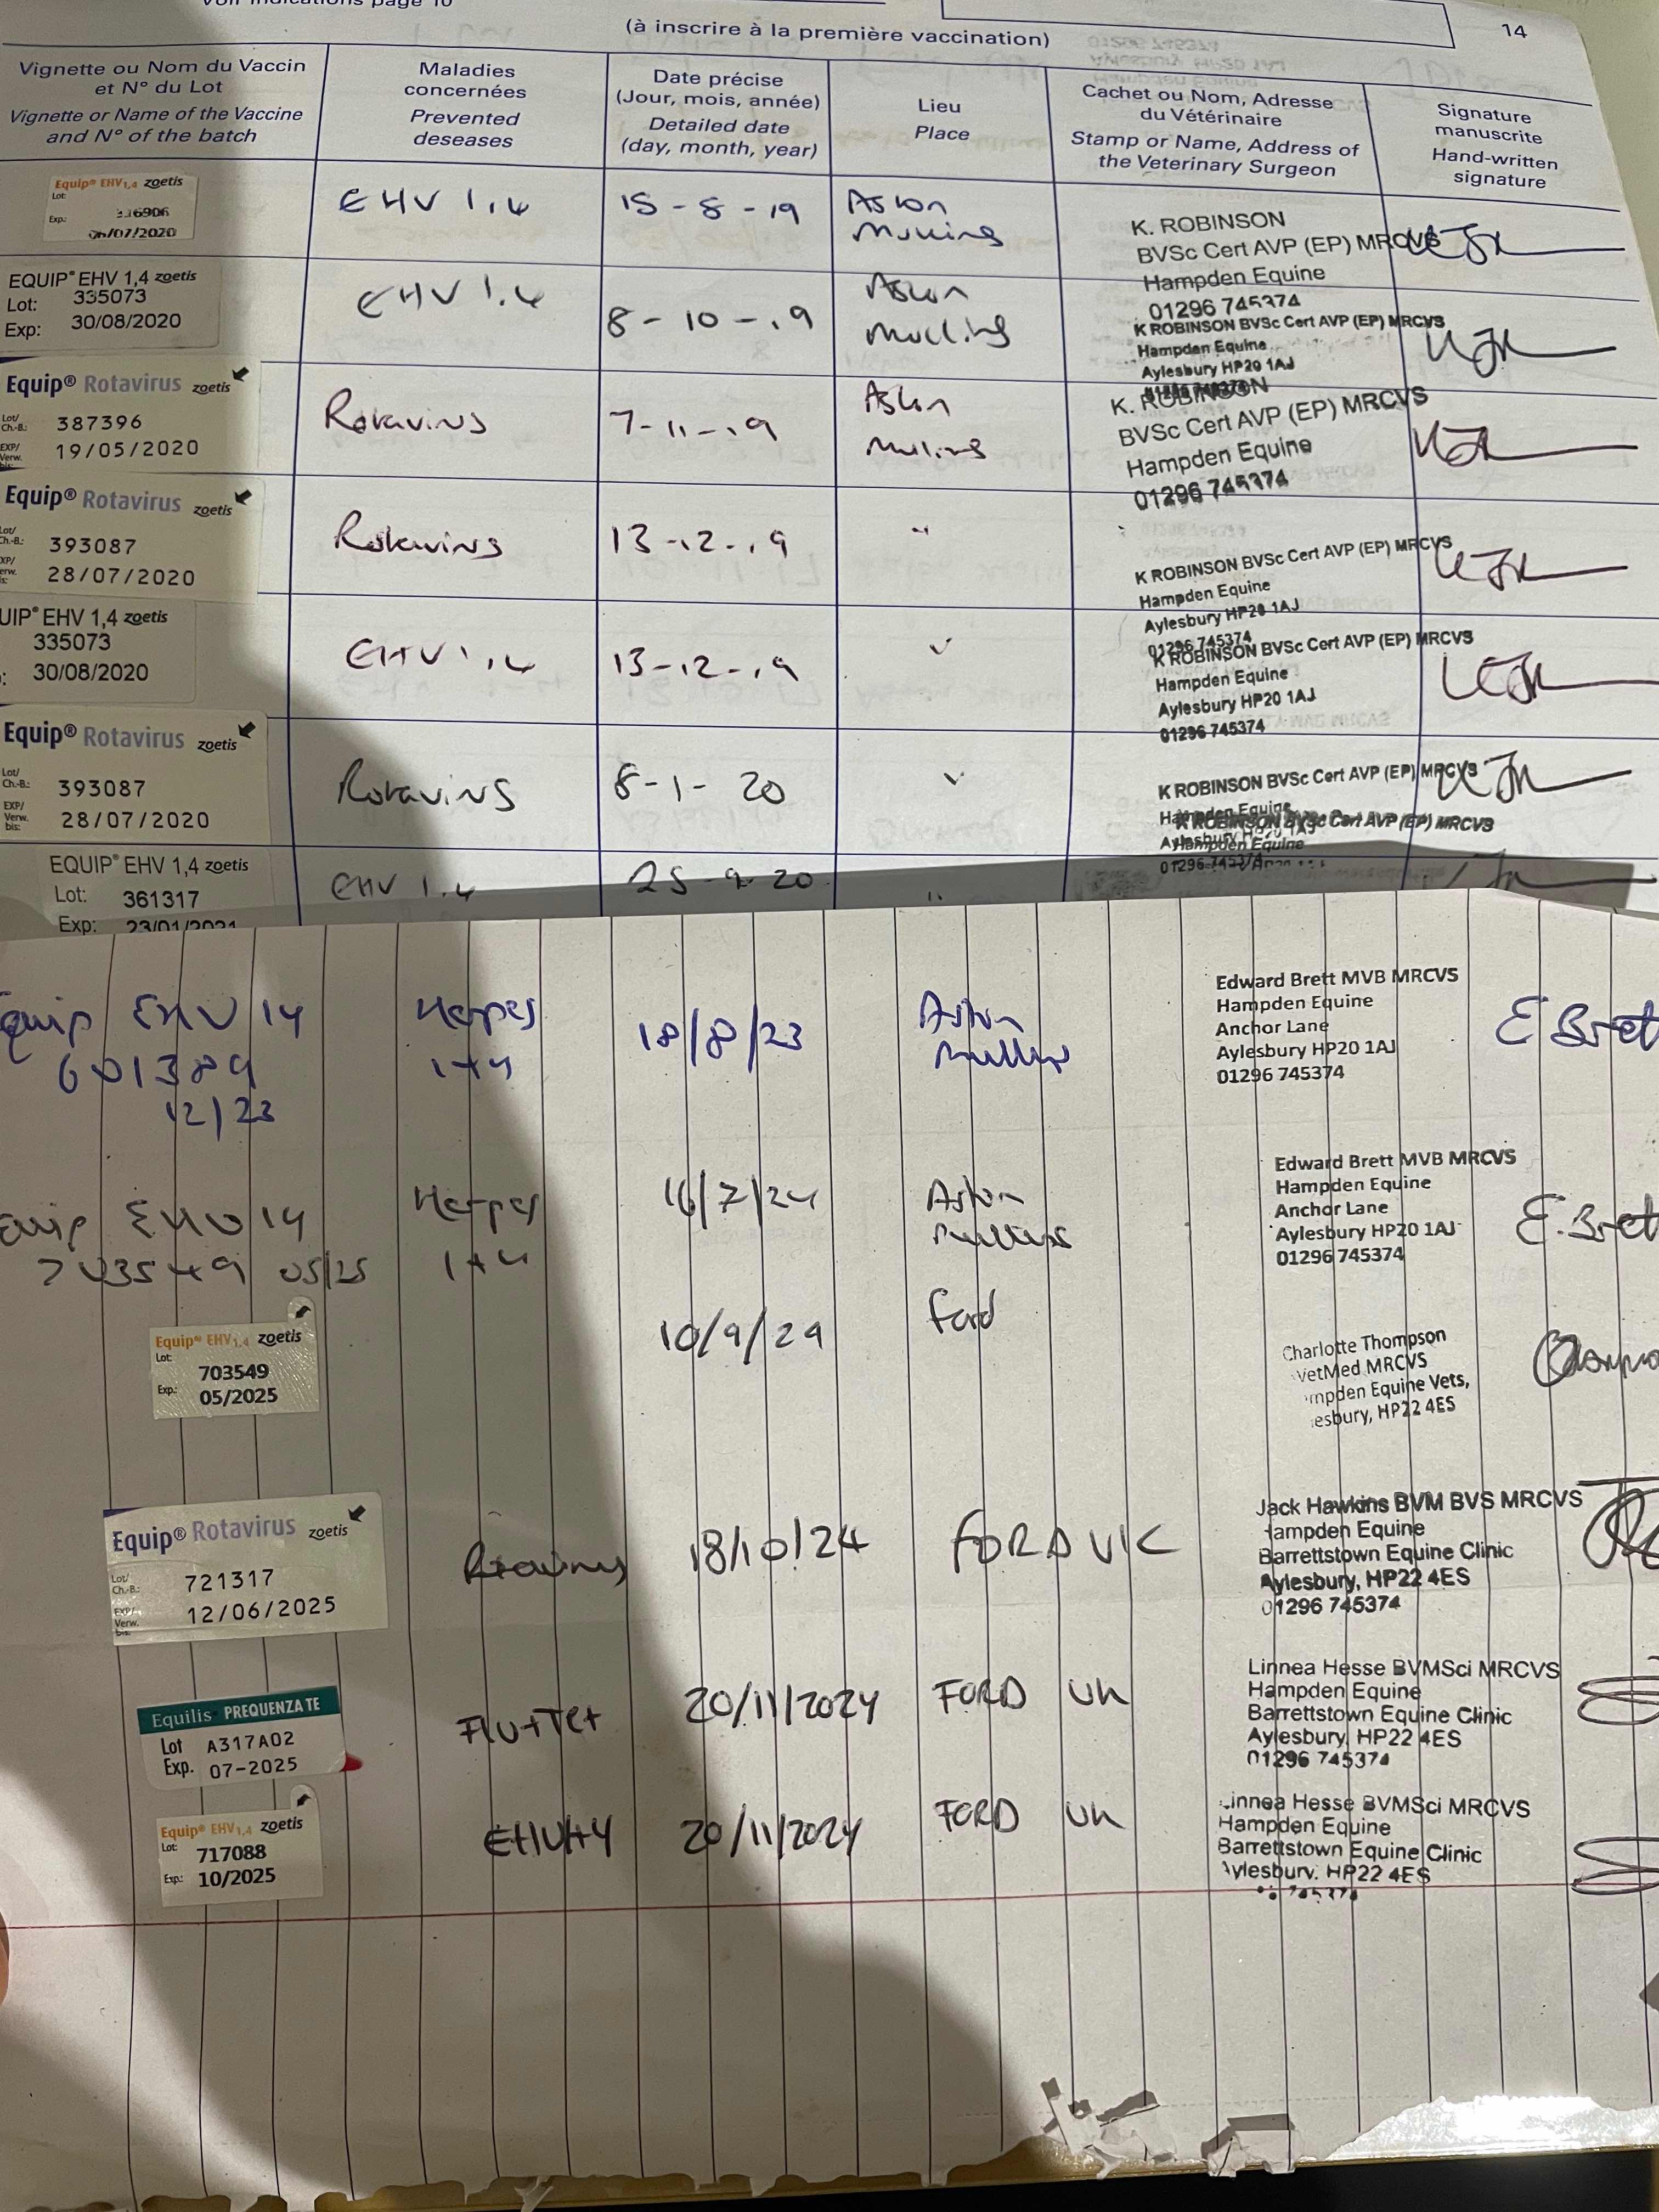 Voir indications page 10
(à inscrire à la première vaccination)
14
Vignette ou Nom du Vaccin
et N° du Lot
Vignette or Name of the Vaccine
and N° of the batch
Maladies
concernées
Prevented
deseases
Date précise
(Jour, mois, année)
Detailed date
(day, month, year)
Lieu
Place
Cachet ou Nom, Adresse
du Vétérinaire
Stamp or Name, Address of
the Veterinary Surgeon
Signature
manuscrite
Hand-written
signature
Equip® EHV1,4 zoetis
Lot:
Exp.:
EHV 1.4
15-8-19
Aston
Mullins
K. ROBINSON
BVSc Cert AVP (EP) MRCVS
Hampden Equine
01296 745374
EQUIP® EHV 1,4 zoetis
Lot: 335073
Exp: 30/08/2020
EHV 1.4
8-10-19
Aston
Mullins
K ROBINSON BVSc Cert AVP (EP) MRCVS
Hampden Equine
Aylesbury HP20 1AJ
Equip® Rotavirus zoetis
Lot/
Ch.-B.: 387396
EXP/
Verw.
bis: 19/05/2020
Rotavirus
7-11-19
Aston
Mullins
K. ROBINSON
BVSc Cert AVP (EP) MRCVS
Hampden Equine
01296 745374
Equip® Rotavirus zoetis
Lot/
Ch.-B.: 393087
EXP/
Verw.
bis: 28/07/2020
Rotavirus
13-12-19
"
K ROBINSON BVSc Cert AVP (EP) MRCVS
Hampden Equine
Aylesbury HP20 1AJ
01296 745374
UIP® EHV 1,4 zoetis
335073
30/08/2020
EHV 1,4
13-12-19
K ROBINSON BVSc Cert AVP (EP) MRCVS
Hampden Equine
Aylesbury HP20 1AJ
01296 745374
Equip® Rotavirus zoetis
Lot/
Ch.-B.: 393087
EXP/
Verw.
bis: 28/07/2020
Rotavirus
8-1-20
K ROBINSON BVSc Cert AVP (EP) MRCVS
Hampden Equine
K ROBINSON BVSc Cert AVP (EP) MRCVS
Hampden Equine
EQUIP® EHV 1,4 zoetis
Lot: 361317
Exp: 23/01/2021
EHV 1.4
25-9-20
"
Equip EHV 14
601389
12/23
Herpes
1+4
18/8/23
Aston
Mullins
Edward Brett MVB MRCVS
Hampden Equine
Anchor Lane
Aylesbury HP20 1AJ
01296 745374
E Brett
Equip EHV 14
703549 05/25
Herpes
1+4
16/7/24
Aston
Mullins
Edward Brett MVB MRCVS
Hampden Equine
Anchor Lane
Aylesbury HP20 1AJ
01296 745374
E.Brett
Equip® EHV1,4 zoetis
Lot: 703549
Exp.: 05/2025
10/9/24
Ford
Charlotte Thompson
VetMed MRCVS
mpden Equine Vets,
esbury, HP22 4ES
Equip® Rotavirus zoetis
Lot/
Ch.-B.: 721317
EXP/
Verw.
bis: 12/06/2025
Rotavirus
18/10/24
FORD UK
Jack Hawkins BVM BVS MRCVS
Hampden Equine
Barrettstown Equine Clinic
Aylesbury, HP22 4ES
01296 745374
Equilis PREQUENZA TE
Lot A317A02
Exp. 07-2025
Flu+Tet
20/11/2024
FORD UK
Linnea Hesse BVMSci MRCVS
Hampden Equine
Barrettstown Equine Clinic
Aylesbury, HP22 4ES
01296 745374
Equip® EHV1,4 zoetis
Lot: 717088
Exp.: 10/2025
EHV1+4
20/11/2024
FORD UK
Linnea Hesse BVMSci MRCVS
Hampden Equine
Barrettstown Equine Clinic
Aylesbury, HP22 4ES